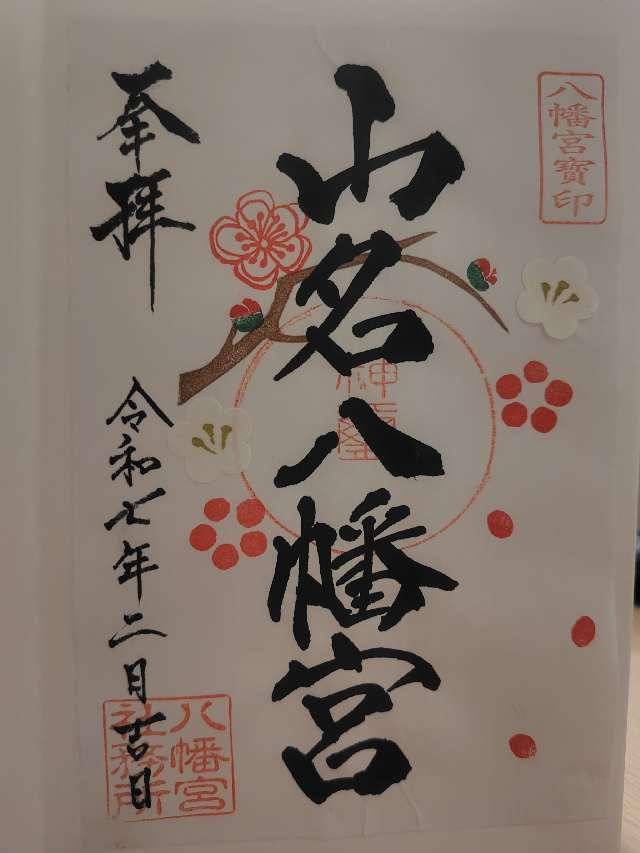 八幡宮寶印
山名八幡宮
奉拝
令和七年二月吉日
八幡宮
社務所